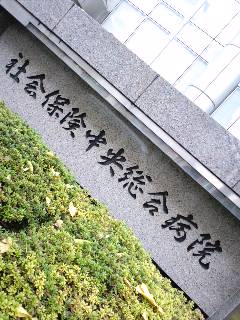 社会保険中央総合病院